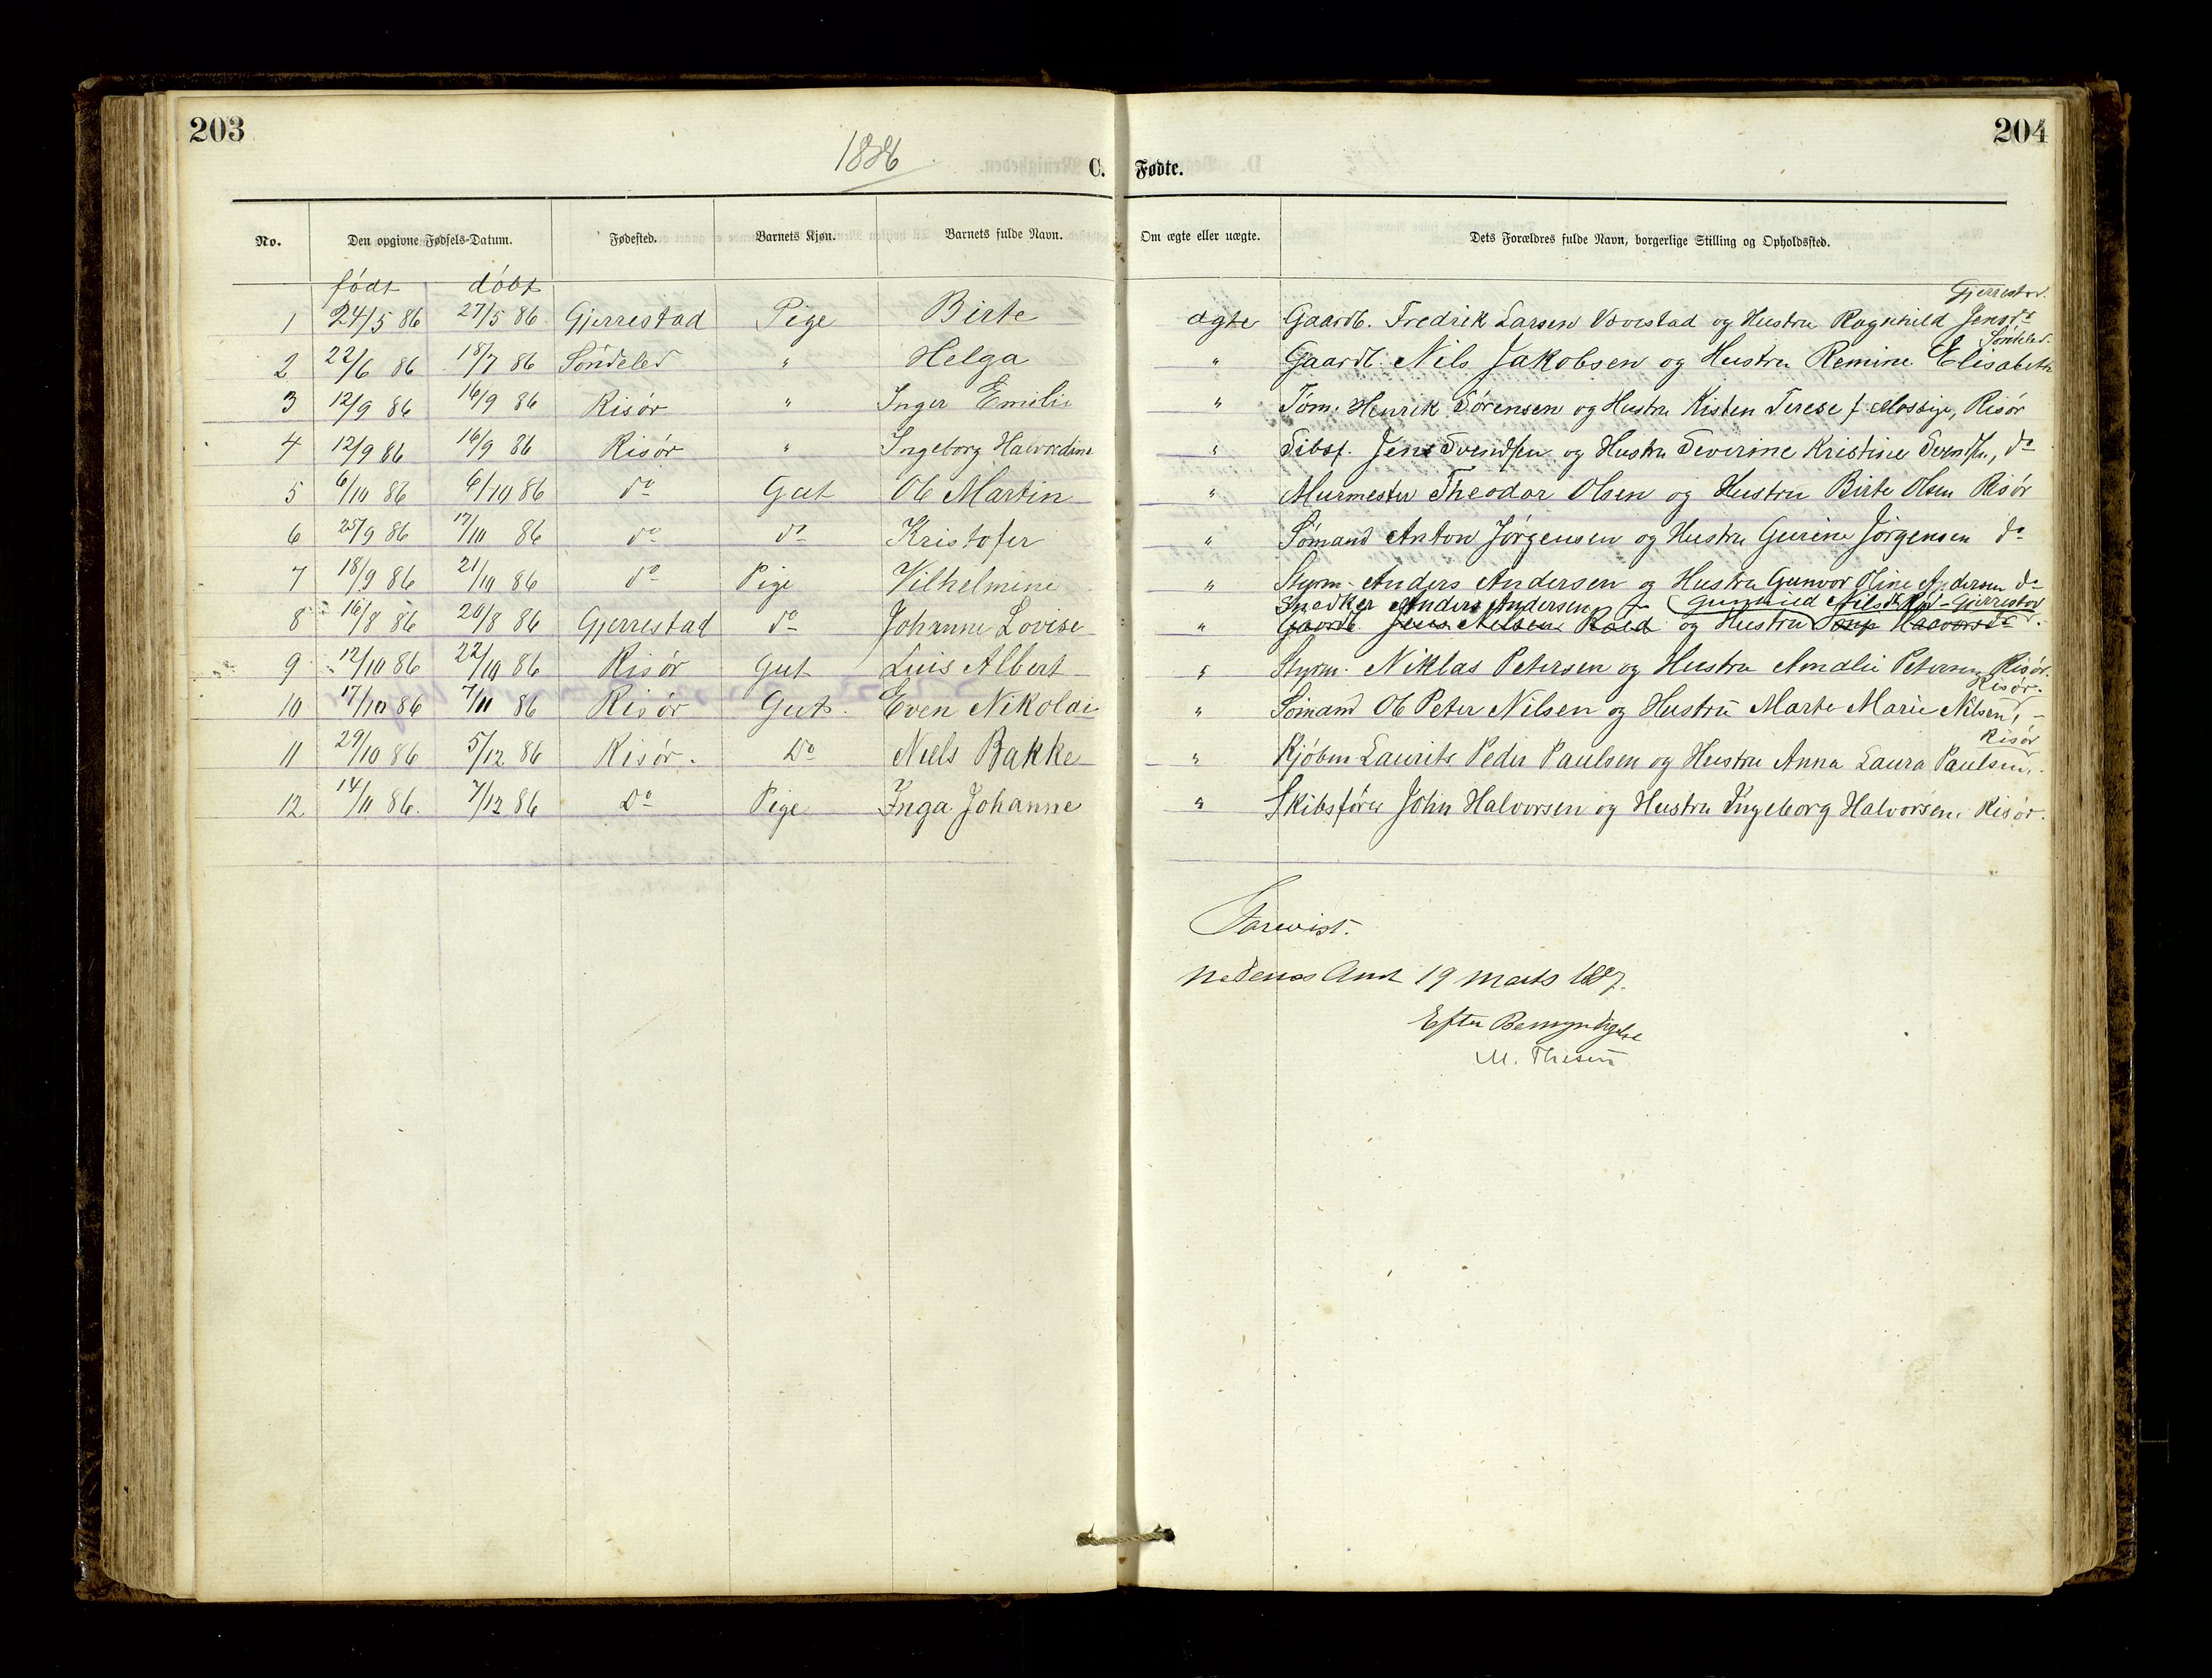 203
204
1886
C. Fødte.
No. Den opgivne Fødsels-Datum. Fødested. Barnets Kjøn. Barnets fulde Navn. Om ægte eller uægte. Dets Forældres fulde Navn, borgerlige Stilling og Opholdssted.
født døbt
Gjerrestad.
1 24/5 86 27/5 86 Gjerrestad Pige Birte ægte Gaardb. Fredrik Larsen Vævestad og Hustru Ragnhild Jensdr
Søndeled.
2 22/6 86 18/7 86 Søndeled " Helga " Gaardb. Nils Jakobsen og Hustru Remine Elisabeth
3 12/9 86 16/9 86 Risør " Inger Emilie " Tøm. Henrik Sørensen og Hustru Kisten Terese f. Mossige, Risør
4 12/9 86 16/9 86 Risør " Ingeborg Halvordine " Jens Svendsen og Hustru Severine Kristine Svendsen, do
5 6/10 86 6/10 86 do Gut Ole Martin " Murmester Theodor Olsen og Hustru Birte Olsen Risør
6 25/9 86 17/10 86 do do Kristofer " Sømand Anton Jørgensen og Hustru Gurine Jørgensen do
7 18/9 86 21/10 86 do Pige Vilhelmine " Styrm. Anders Andersen og Hustru Gunvor Oline Andersen do
Snedker Anders Andersen Gunhild Nilsdr Gjerrestad
8 16/8 86 20/8 86 Gjerrestad do Johanne Lovise " Gaardb. Jens Nilsen Roed og Hustru Halvorsdr.
9 12/10 86 22/10 86 Risør Gut Luis Albert " Styrm. Niklas Petersen og Hustru Amalie Petersen, Risør.
Risør.
10 17/10 86 7/11 86 Risør Gut. Even Nikolai " Sømand Ole Peter Nilsen og Hustru Marte Marie Nilsen, –
Risør
11 29/10 86 5/12 86 Risør. Do Niels Bakke " Kjøbm. Laurits Peder Paulsen og Hustru Anna Laura Paulsen.
12 14/11 86. 7/12 86 Do Pige Inga Johanne " Skibsfører John Halvorsen og Hustru Ingeborg Halvorsen. Risør.
Forevist.
Nedenæs Amt 19 Marts 1887.
Efter Bemyndigelse
M. Thesen